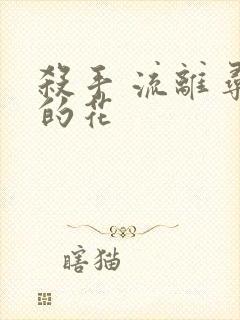 殺手 流離尋
的花
瞎猫